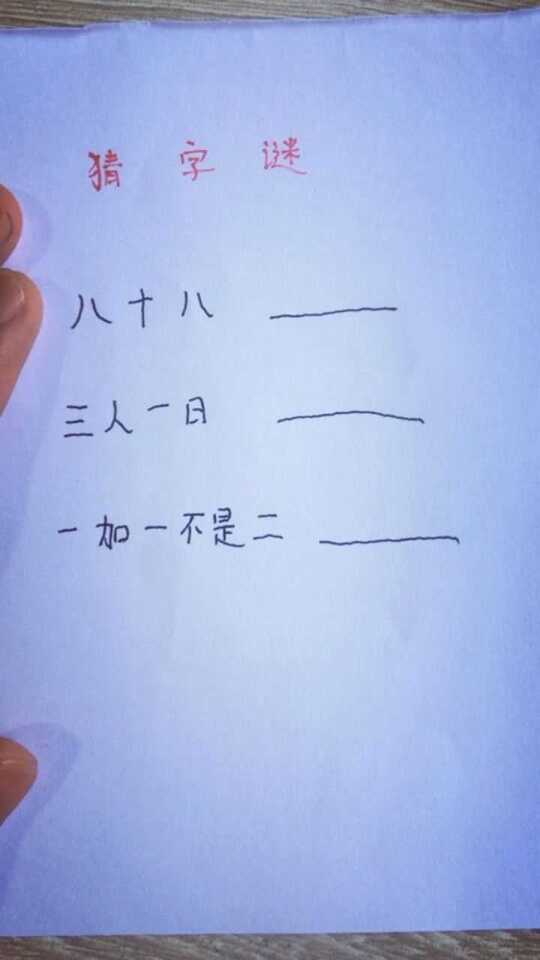 猜字谜
八十八
三人一日
一加一不是二